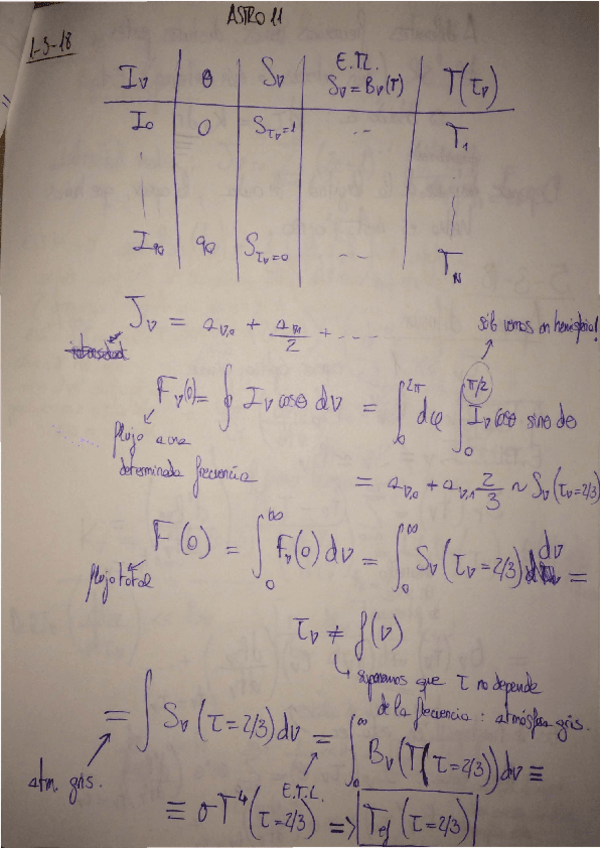 ASTRO 11
1-3-18
I_ν | θ | S_ν | E.T.L. S_ν = B_ν(T) | T(τ_ν)
I_0 | 0 | S_{τ_ν=1} | -- | T_1
I_90 | 90 | S_{τ_ν=0} | -- | T_N
J_ν = a_{ν,0} + a_{ν,1}/2 + ----
sólo vemos un hemisferio!
F_ν(0) = ∮ I_ν cosθ dν = ∫_0^{2π} dφ ∫_0^{π/2} I_ν cosθ sinθ dθ
flujo a una
determinada frecuencia
= a_{ν,0} + a_{ν,1} 2/3 ~ S_ν(τ_ν=2/3)
F(0) = ∫_0^∞ F_ν(0) dν = ∫_0^∞ S_ν(τ_ν=2/3) dν =
flujo total
τ_ν ≠ f(ν)
↳ suponemos que τ no depende
de la frecuencia: atmósfera gris.
= ∫ S_ν(τ=2/3) dν = ∫_0^∞ B_ν(T(τ=2/3)) dν ≡
atm. gris.
E.T.L.
≡ σT^4(τ=2/3) => T_ef(τ=2/3)